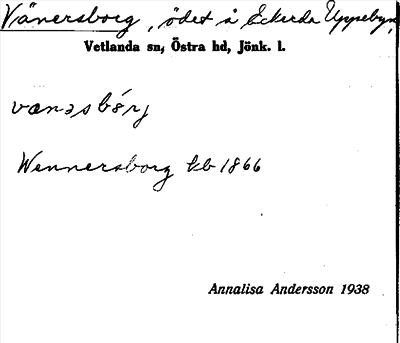 Vänersborg, ödet å Eckerda Uppebyn,
Vetlanda sn, Östra hd, Jönk. l.
Wennersborg kb 1866
Annalisa Andersson 1938